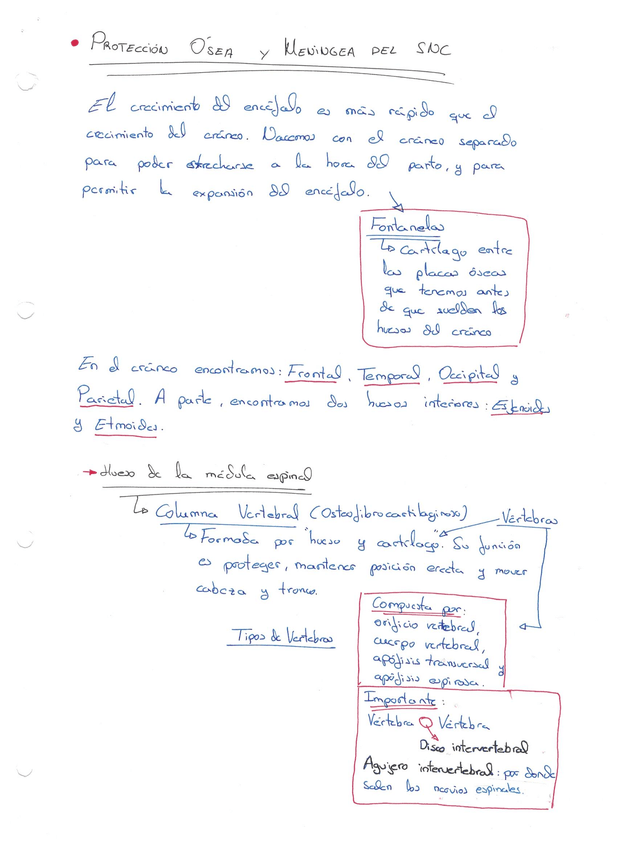 • PROTECCIÓN ÓSEA Y MENINGEA DEL SNC
El crecimiento del encéfalo es más rápido que el
crecimiento del cráneo. Nacemos con el cráneo separado
para poder estrecharse a la hora del parto, y para
permitir la expansión del encéfalo.
Fontanelas
↳ Cartílago entre
las placas óseas
que tenemos antes
de que suelden los
huesos del cráneo
En el cráneo encontramos: Frontal, Temporal, Occipital y
Parietal. A parte, encontramos dos huesos interiores: Efenoides
y Etmoides.
→ Hueso de la médula espinal
↳ Columna Vertebral (Osteofibrocartilaginoso)
↳ Formada por "hueso y cartílago". Su función
Vértebras
es proteger, mantener posición erecta y mover
cabeza y tronco.
Tipos de Vértebras
Compuesta por:
orificio vertebral,
cuerpo vertebral,
apófisis transversal y
apófisis espinosa.
Importante:
Vértebra Vértebra
Disco intervertebral
Agujero intervertebral: por donde
salen los nervios espinales.